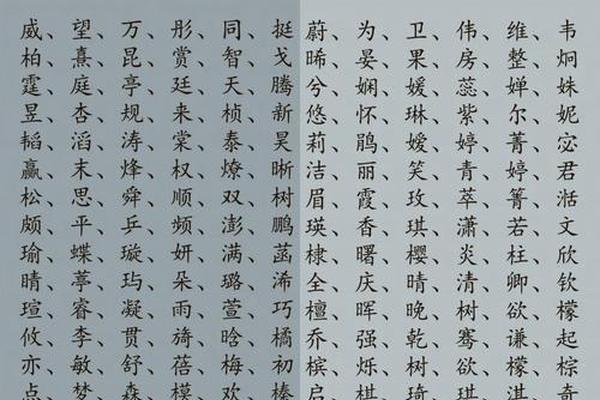 威、望、万、彤、同、挺
柏、熹、昆、赏、智、戈
霆、庭、亭、廷、天、腾
昱、杏、规、来、桢、新
韬、滔、涛、棠、泰、昊
赢、末、烽、权、燎、晰
松、思、舜、顺、双、树
颇、平、乒、频、澎、鹏
瑜、蝶、璇、妍、满、菡
晴、葶、玙、朵、璐、浠
瑄、睿、凝、雨、萱、巧
攸、李、贯、旖、晗、橘
亦、敏、舒、蓓、梅、初
点、梦、森、模、欢、榛
蔚、为、卫、伟、维、韦
晞、晏、果、房、整、炯
兮、娴、媛、蕊、婵、姝
悠、怀、琳、紫、尔、妮
莉、鹃、嫒、婷、菁、宓
洁、丽、笑、青、婷、君
眉、霞、玫、萃、箐、湉
瑛、香、琪、潇、若、文
棣、曙、樱、炎、柱、欣
全、庆、晴、清、卿、钦
檀、晖、晚、树、欲、檬
乔、强、乾、骞、谦、起
槟、烁、树、欲、檬、棕
启、棋、琦、琪、淇、奇